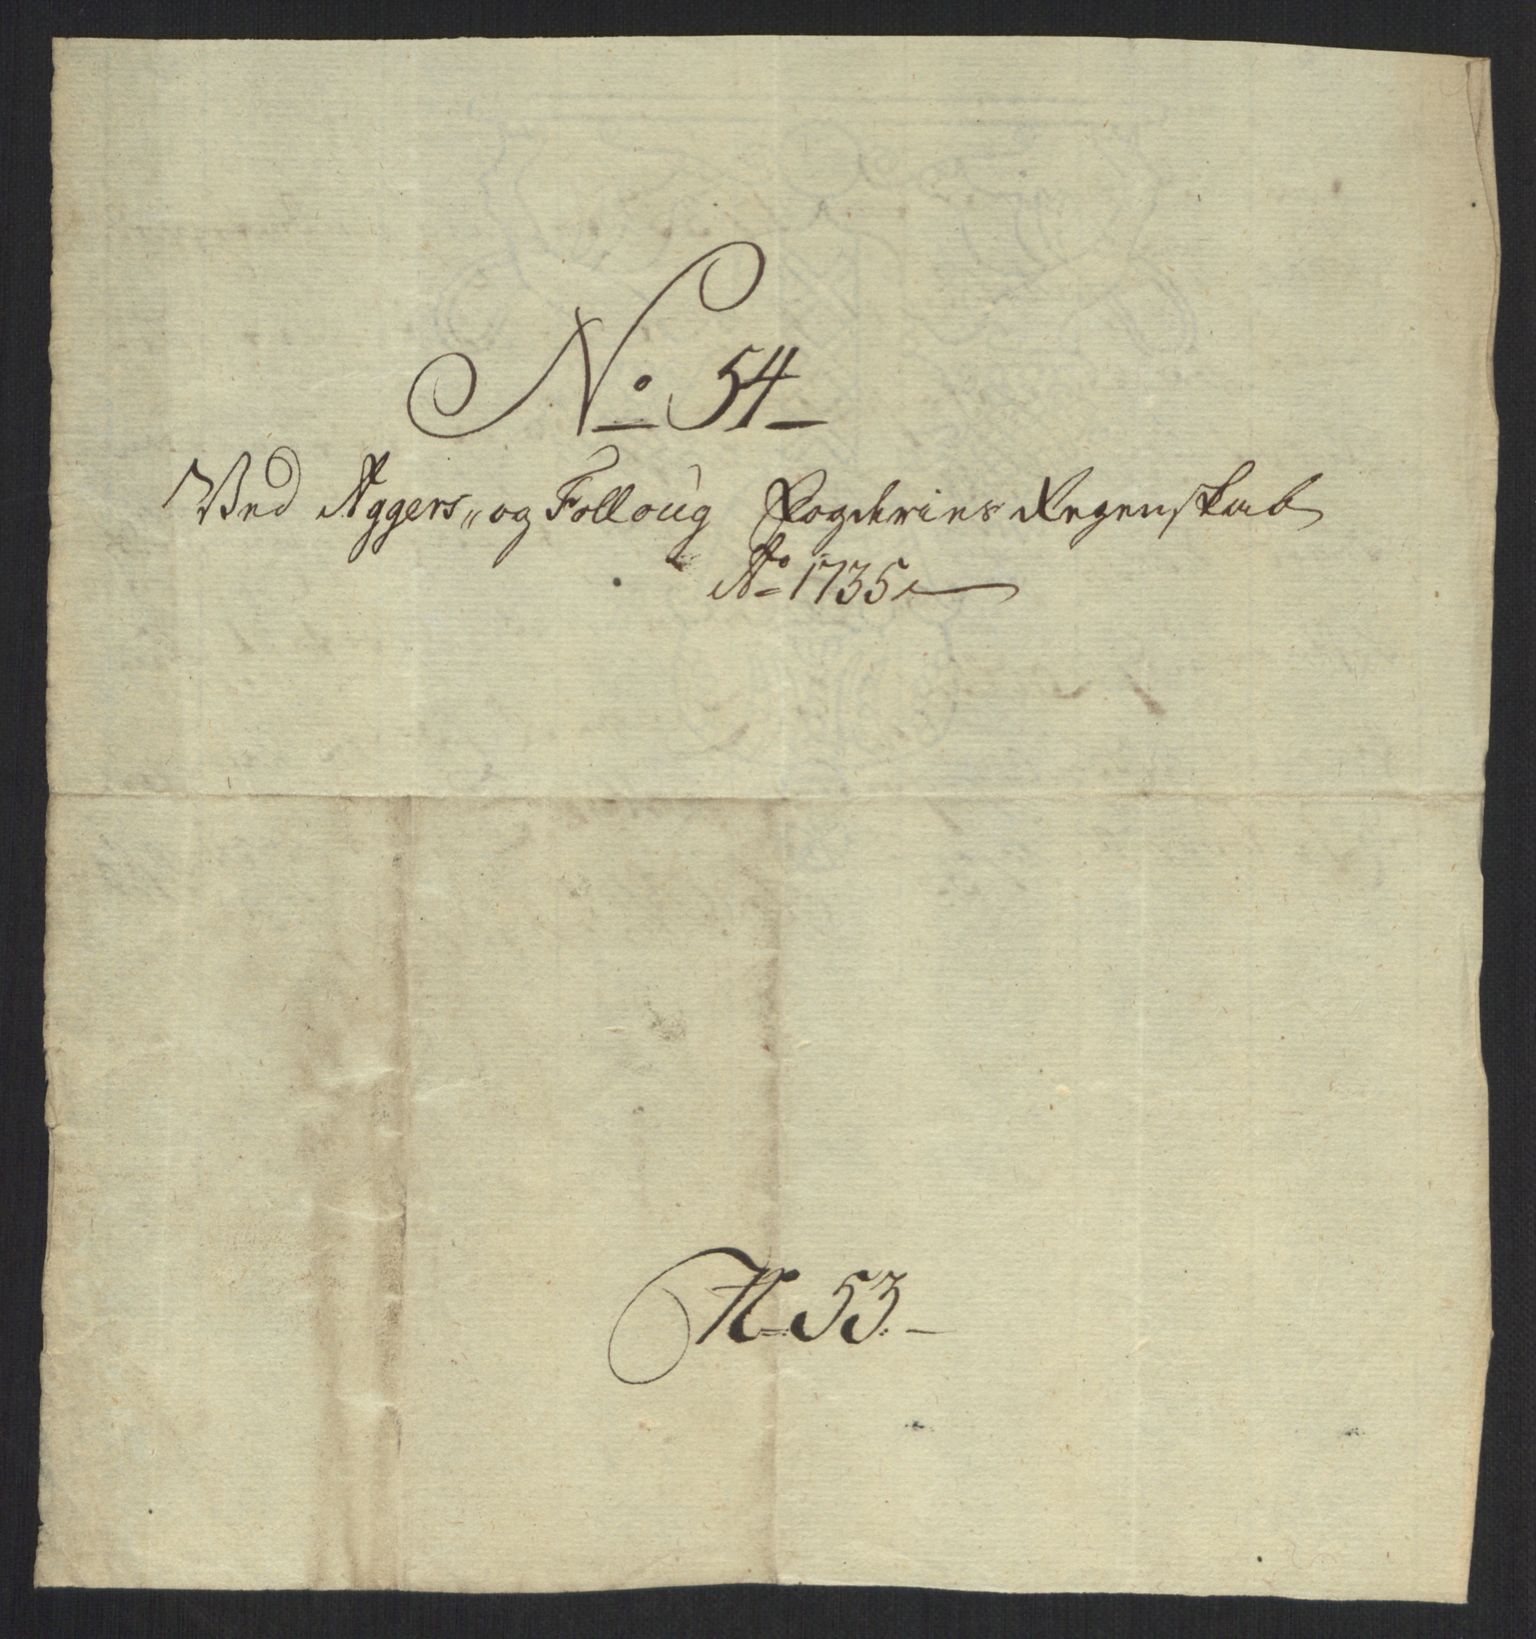 No 54
Ved Aggers„ og Folloug Fogderies Regenskab
Ao 1735
No 53.